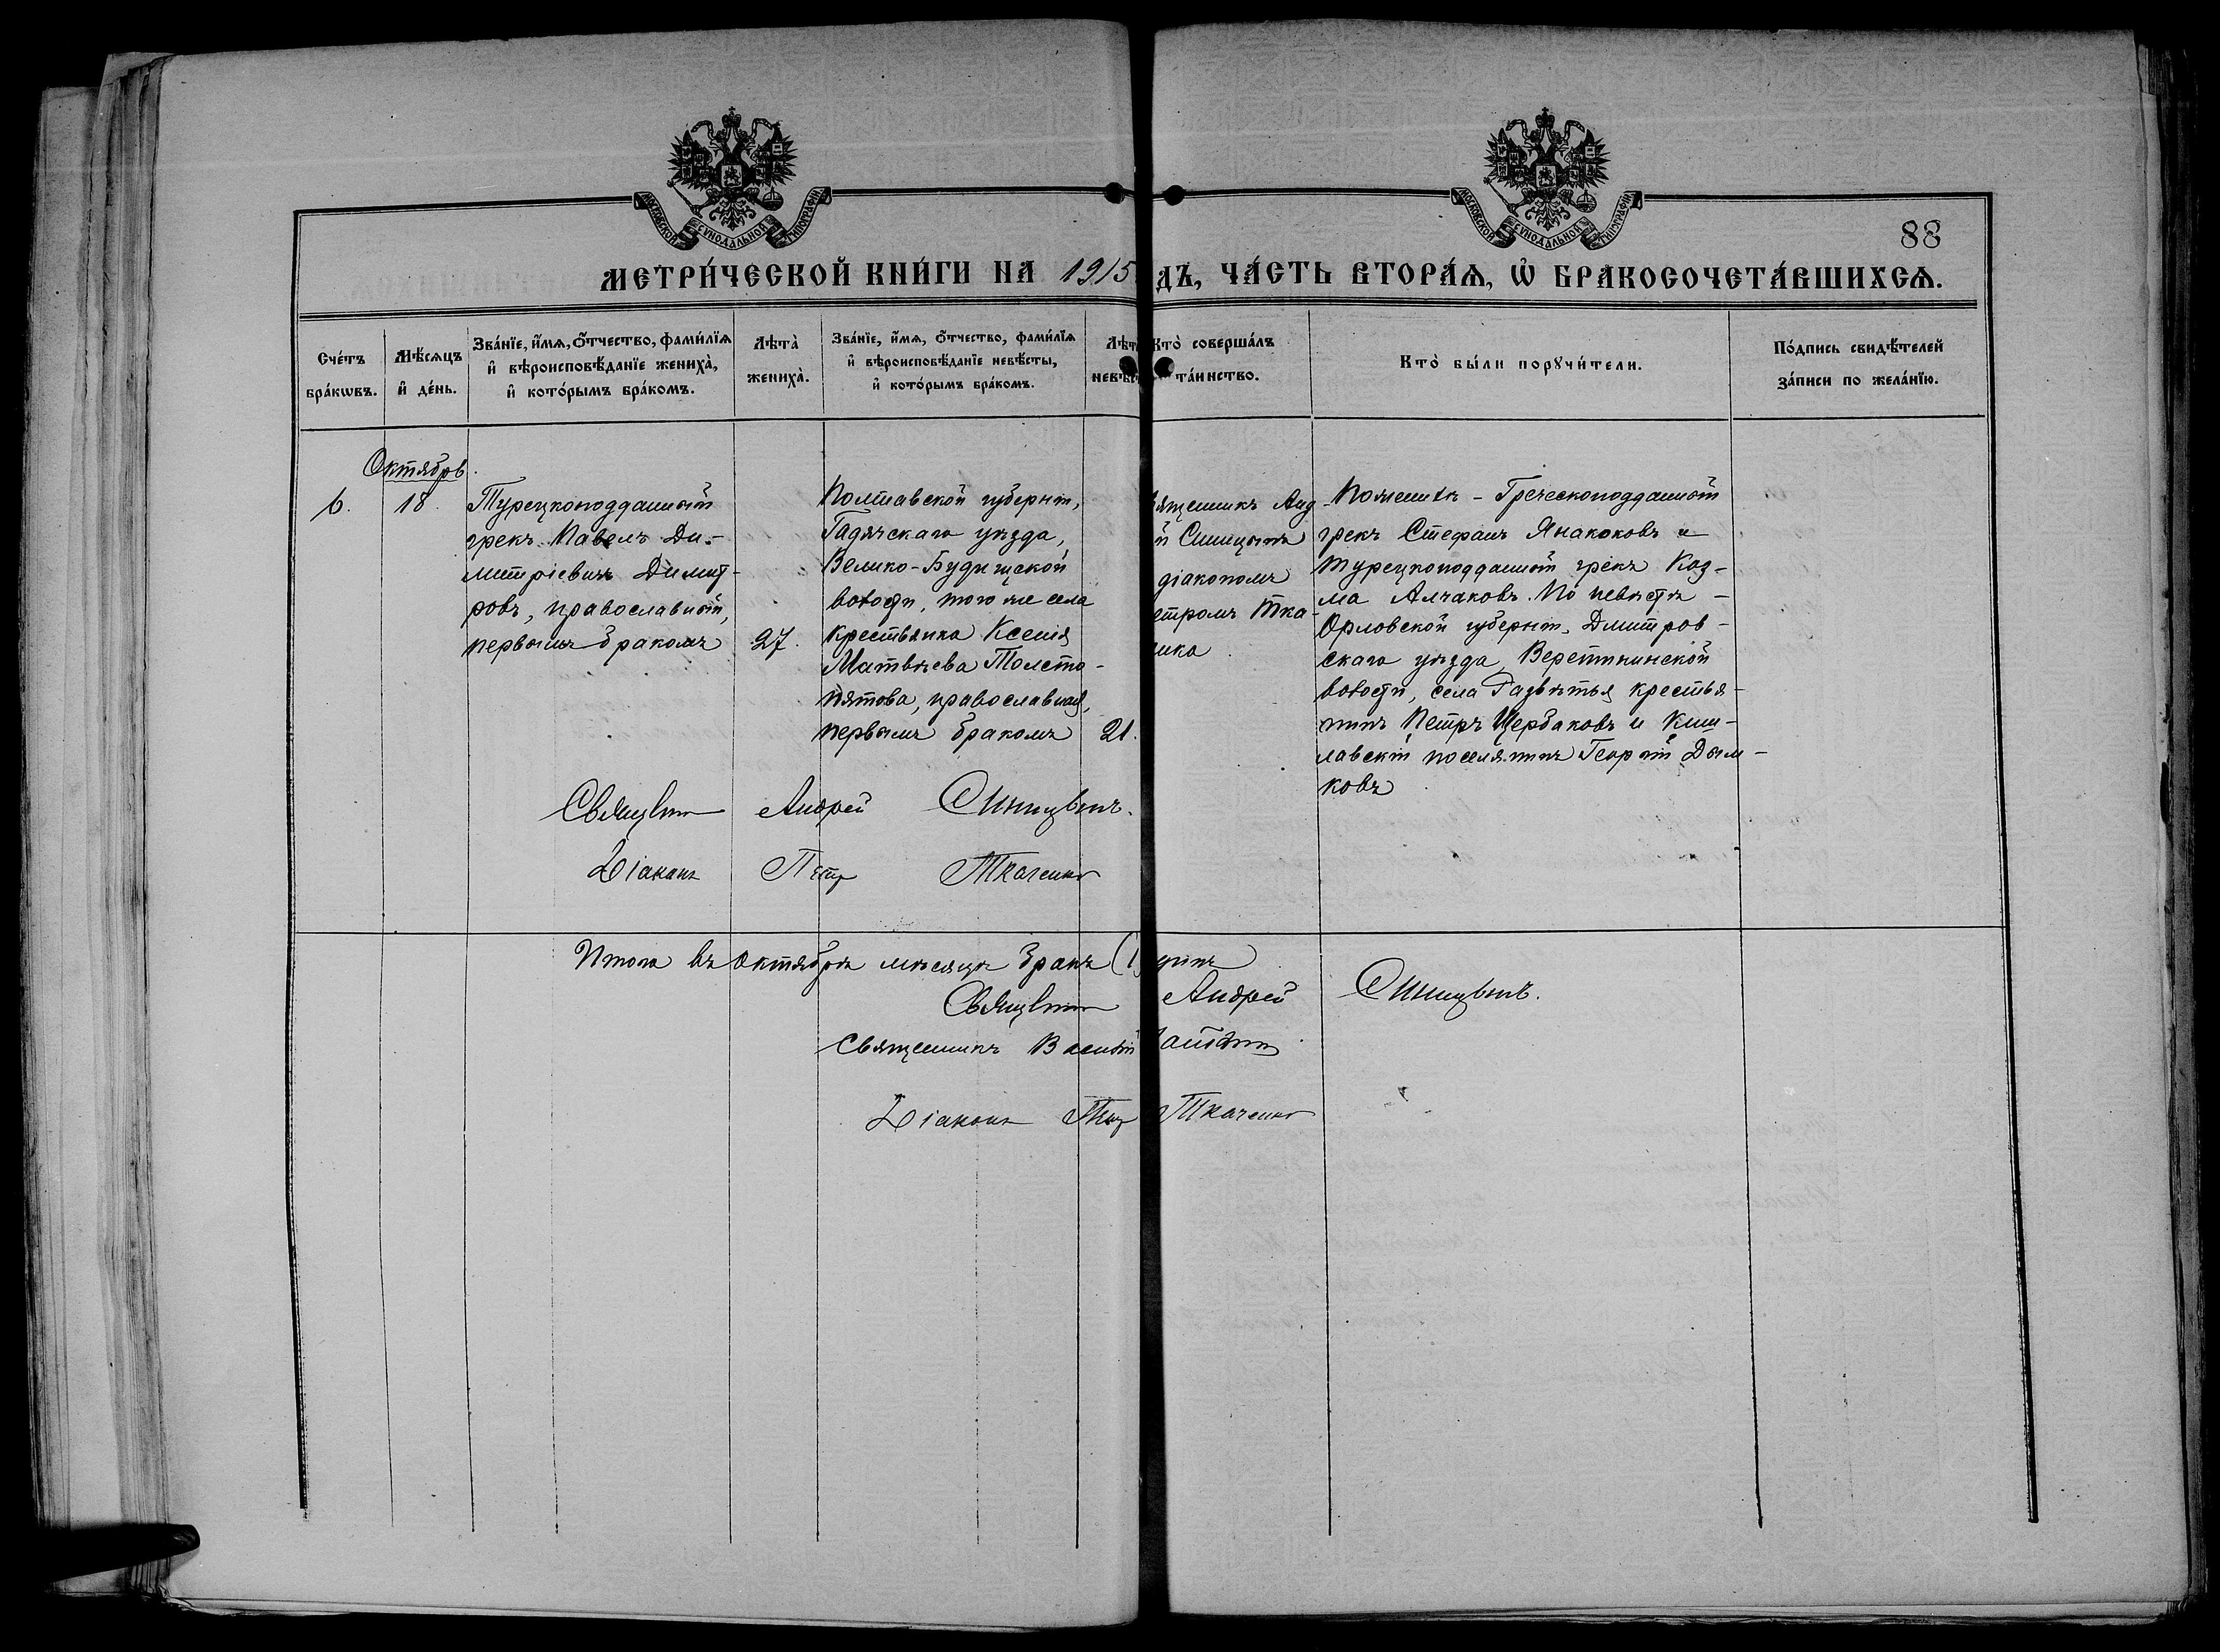 МОСКОВСКОЙ СѴНОДАЛЬНОЙ ТИПОГРАФІИ
МОСКОВСКОЙ СѴНОДАЛЬНОЙ ТИПОГРАФІИ
88
МЕТРИ́ЧЕСКОЙ КНИ́ГИ НА 1915
ДЪ, ЧА́СТЬ ВТОРА́Ѧ, Ѡ҆ БРАКОСОЧЕТА́ВШИХСѦ.
Сче́тъ бра́кѡвъ.
Мѣ́сѧцъ и҆ де́нь.
Зва́нїе, и҆́мѧ, ѻ҆́тчество, фами́лїѧ
и҆ вѣроисповѣ́данїе жениха̀,
и҆ кото́рымъ бра́комъ.
Лѣта̀ жениха̀.
Зва́нїе, и҆́мѧ, ѻ҆́тчество, фами́лїѧ
и҆ вѣроисповѣ́данїе невѣ́сты,
и҆ кото́рымъ бра́комъ.
Лѣт невѣст
Кто̀ соверша́лъ та́инство.
Кто̀ бы́ли порꙋчи́тели.
По́дпись свидѣ́телей
за́писи по жела́нїю.
Октябрь.
6.
18.
Турецкоподданный
грекъ Павелъ Ди-
митріевичъ Димит-
ровъ, православный,
первымъ бракомъ
27.
Полтавской губерніи,
Гадячскаго уѣзда,
Велико-Будищской
волости, того же села
крестьянка Ксенія
Матвѣева Толсто-
пятова, православная,
первымъ бракомъ
21.
ященникъ Анд
й Синицынъ
діакономъ
етромъ Тка-
нко.
По женихѣ - Греческоподданный
грекъ Стефанъ Янакоковъ и
турецкоподданный грекъ Коз-
ма Алчаковъ. По невѣстѣ -
Орловской губерніи, Дмитров-
скаго уѣзда, Веретткинской
волости, села Развѣтья крестья-
нинъ Петръ Щербаковъ и Киш-
лавскій поселянинъ Георгій Дым-
ковъ
Священникъ Андрей Синицынъ.
Діаконъ Петр Ткаченко
Итого въ октябрѣ мѣсяцѣ бракъ (1) единъ
Священникъ Андрей Синицынъ.
Священникъ Василій
Діаконъ Петр Ткаченко